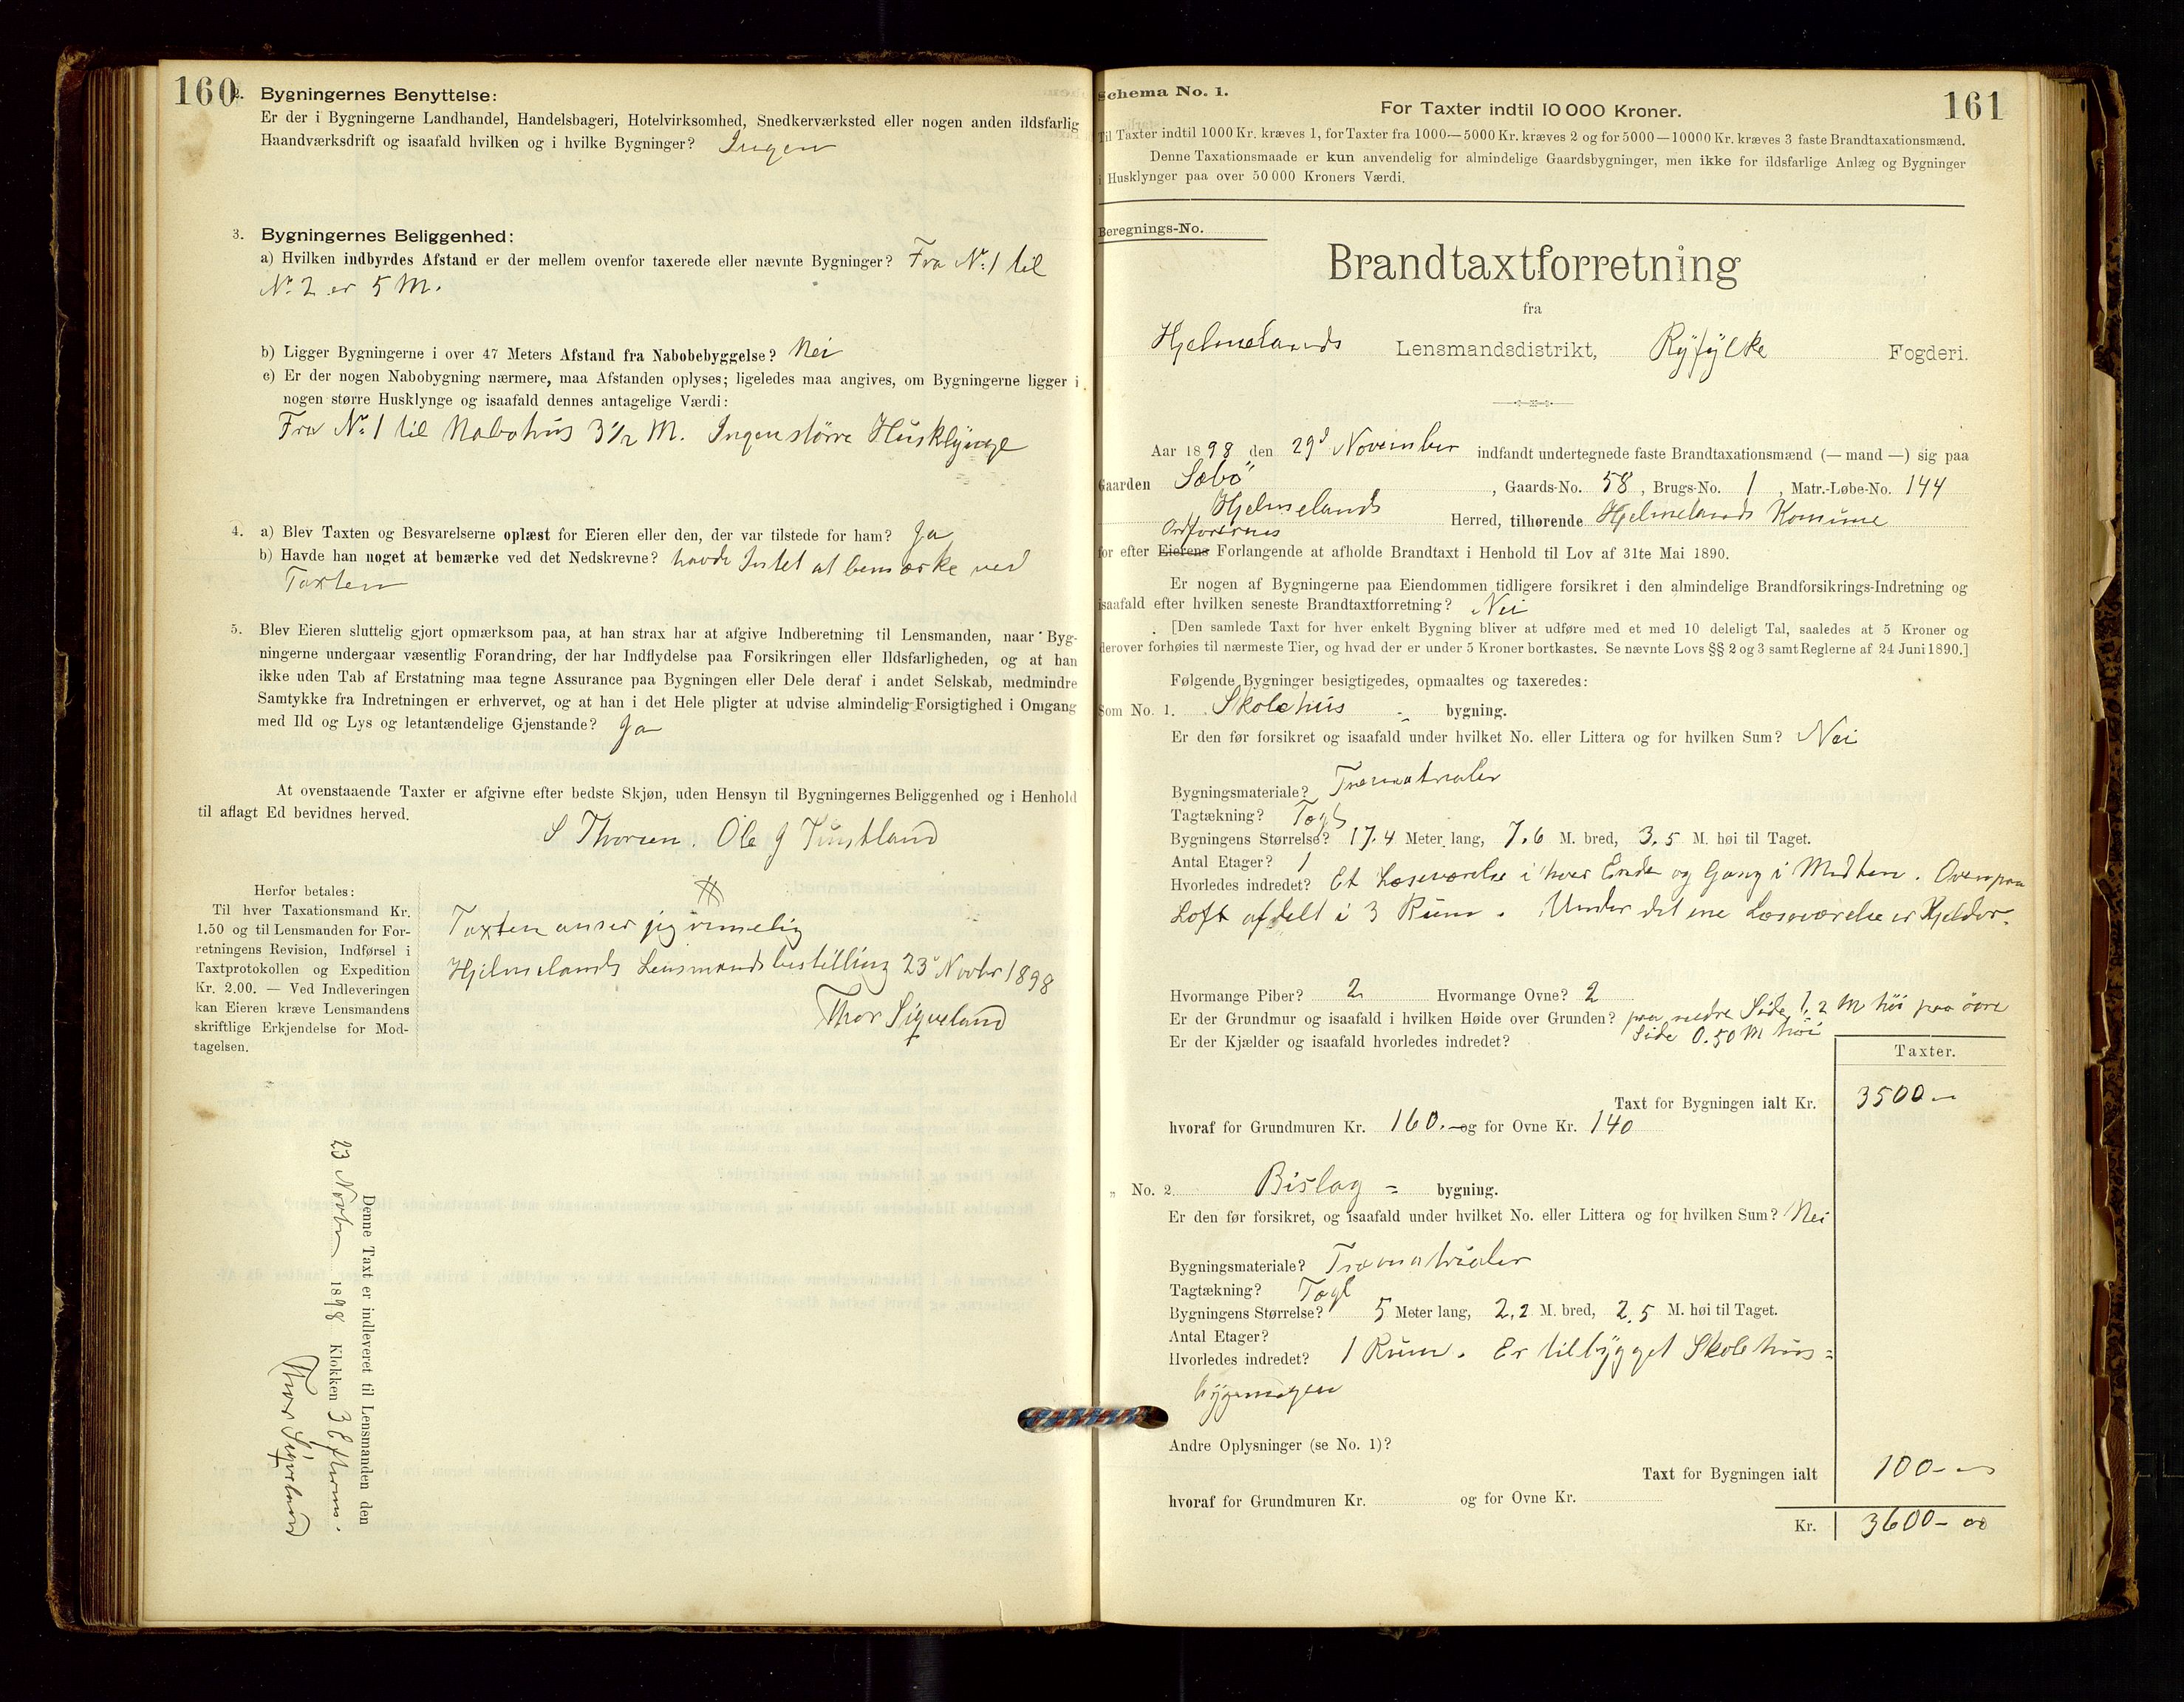 160
2. Bygningernes Benyttelse:
Er der i Bygningerne Landhandel, Handelsbageri, Hotelvirksomhed, Snedkerværksted eller nogen anden ildsfarlig
Haandværksdrift og isaafald hvilken og i hvilke Bygninger? Ingen
3. Bygningernes Beliggenhed:
a) Hvilken indbyrdes Afstand er der mellem ovenfor taxerede eller nævnte Bygninger? Fra No. 1 til
No. 2 er 5 M.
b) Ligger Bygningerne i over 47 Meters Afstand fra Nabobebyggelse? Nei
c) Er der nogen Nabobygning nærmere, maa Afstanden oplyses; ligeledes maa angives, om Bygningerne ligger i
nogen større Husklynge og isaafald dennes antagelige Værdi:
Fra No. 1 til Nabohus 3½ M. Ingen større Husklynge
4. a) Blev Taxten og Besvarelserne oplæst for Eieren eller den, der var tilstede for ham? Ja
b) Havde han noget at bemærke ved det Nedskrevne? havde Intet at bemærke ved
Taxten
5. Blev Eieren sluttelig gjort opmærksom paa, at han strax har at afgive Indberetning til Lensmanden, naar Byg-
ningerne undergaar væsentlig Forandring, der har Indflydelse paa Forsikringen eller Ildsfarligheden, og at han
ikke uden Tab af Erstatning maa tegne Assurance paa Bygningen eller Dele deraf i andet Selskab, medmindre
Samtykke fra Indretningen er erhvervet, og at han i det Hele pligter at udvise almindelig Forsigtighed i Omgang
med Ild og Lys og letantændelige Gjenstande? Ja
At ovenstaaende Taxter er afgivne efter bedste Skjøn, uden Hensyn til Bygningernes Beliggenhed og i Henhold
til aflagt Ed bevidnes herved.
S Thorsen. Ole G
Herfor betales:
Til hver Taxationsmand Kr.
1.50 og til Lensmanden for For-
retningens Revision, Indførsel i
Taxtprotokollen og Expedition
Kr. 2.00. — Ved Indleveringen
kan Eieren kræve Lensmandens
skriftlige Erkjendelse for Mod-
tagelsen.
Taxten anser jeg rimelig
Hjelmelands Lensmandsbestilling 23 Novbr 1898
Thor Sigveland
Denne Taxt er indleveret til Lensmanden den
23 Novbr 1898 Klokken 3 Efterm.
Thor Sigveland
Schema No. 1.
For Taxter indtil 10 000 Kroner.
161
Til Taxter indtil 1000 Kr. kræves 1, for Taxter fra 1000—5000 Kr. kræves 2 og for 5000—10000 Kr. kræves 3 faste Brandtaxationsmænd.
Denne Taxationsmaade er kun anvendelig for almindelige Gaardsbygninger, men ikke for ildsfarlige Anlæg og Bygninger
i Husklynger paa over 50 000 Kroners Værdi.
Beregnings-No.
Brandtaxtforretning
fra
Hjelmelands Lensmandsdistrikt, Ryfylke Fogderi.
Aar 1898 den 29d November indfandt undertegnede faste Brandtaxationsmænd (— mand —) sig paa
Gaarden Sæbö, Gaards-No. 58, Brugs-No. 1, Matr.-Løbe-No. 144
Hjelmelands Herred, tilhørende Hjelmelands Komune
Ordførernes
for efter Eierens Forlangende at afholde Brandtaxt i Henhold til Lov af 31te Mai 1890.
Er nogen af Bygningerne paa Eiendommen tidligere forsikret i den almindelige Brandforsikrings-Indretning og
isaafald efter hvilken seneste Brandtaxtforretning? Nei
[Den samlede Taxt for hver enkelt Bygning bliver at udføre med et med 10 deleligt Tal, saaledes at 5 Kroner og
derover forhøies til nærmeste Tier, og hvad der er under 5 Kroner bortkastes. Se nævnte Lovs §§ 2 og 3 samt Reglerne af 24 Juni 1890.]
Følgende Bygninger besigtigedes, opmaaltes og taxeredes:
Som No. 1. Skolehus bygning.
Er den før forsikret og isaafald under hvilket No. eller Littera og for hvilken Sum? Nei
Bygningsmateriale? Træmatrialer
Tagtækning? Tagl
Bygningens Størrelse? 17.4 Meter lang, 7.6 M. bred, 3.5 M. høi til Taget.
Antal Etager? 1
Hvorledes indredet? Et Læseværelse i hver Ende og Gang i Midten. Ovenpaa
Loft afdelt i 3 Rum. Under det ene Læseværelse er Kjelder.
Hvormange Piber? 2 Hvormange Ovne? 2
Er der Grundmur og isaafald i hvilken Høide over Grunden? paa nedre Side 1,2 M høi paa övre
Side 0.50 M høi
Er der Kjælder og isaafald hvorledes indredet?
Taxter.
Taxt for Bygningen ialt Kr. 3500 —
hvoraf for Grundmuren Kr. 160.— og for Ovne Kr. 140
" No. 2 Bislag = bygning.
Er den før forsikret, og isaafald under hvilket No. eller Littera og for hvilken Sum? Nei
Bygningsmateriale? Træmatrialer
Tagtækning? Tagl
Bygningens Størrelse? 5 Meter lang, 2,2 M. bred, 2,5 M. høi til Taget.
Antal Etager?
Hvorledes indredet? 1 Rum. Er tilbygget Skolehus=
bygningen
Andre Oplysninger (se No. 1)?
Taxt for Bygningen ialt 100 —
hvoraf for Grundmuren Kr. og for Ovne Kr.
Kr. 3600 - 00